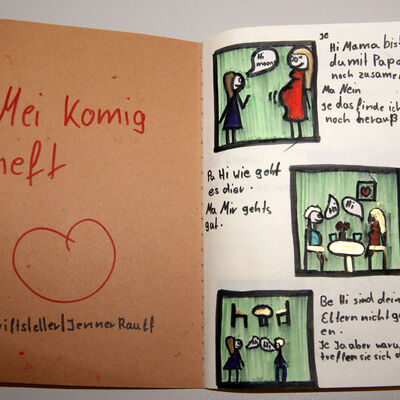 Mei Komig
heft
riftsteller/Jenner Rautf
Hi
mom!
Je
Hi Mama bist
du mit Papa
noch zusamen
Ma Nein
Je das finde ich
noch herauß
Pa Hi wie geht
es dier.
Ma Mir gehts
gut.
Hi
Hi
Hi
Hi
Be Hi sind dein
Eltern nicht ge
en.
Je Ja aber waru
treffen sie sich d